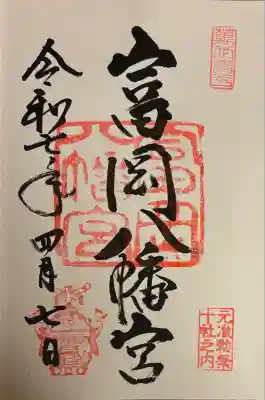 富岡八幡宮
元准勅祭
十社之内
令和七年四月七日